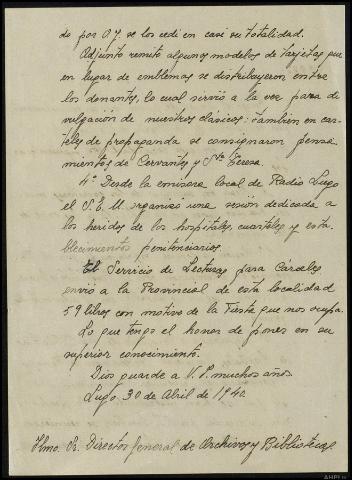 do por O.J. se los cedí en casi su totalidad.
Adjunto remito algunos modelos de tarjetas que
en lugar de emblemas se distribuyeron entre
los donantes, lo cual sirvió a la vez para di-
vulgación de nuestros clásicos: también en car-
teles de propaganda se consignaron pensa
mientos de Cervantes y Sta Teresa.
4º Desde la emisora local de Radio Lugo
el S.E.U. organizó una sesión dedicada a
los heridos de los hospitales, cuarteles y esta-
blecimientos penitenciarios.
El Servicio de Lecturas para Cárceles
envió a la Provincial de esta localidad
59 libros con motivo de la Fiesta que nos ocupa.
Lo que tengo el honor de poner en su
superior conocimiento.
Dios guarde a V.I. muchos años
Lugo, 30 de Abril de 1940.
Ilmo. Sr. Director General de Archivos y Bibliotecas.